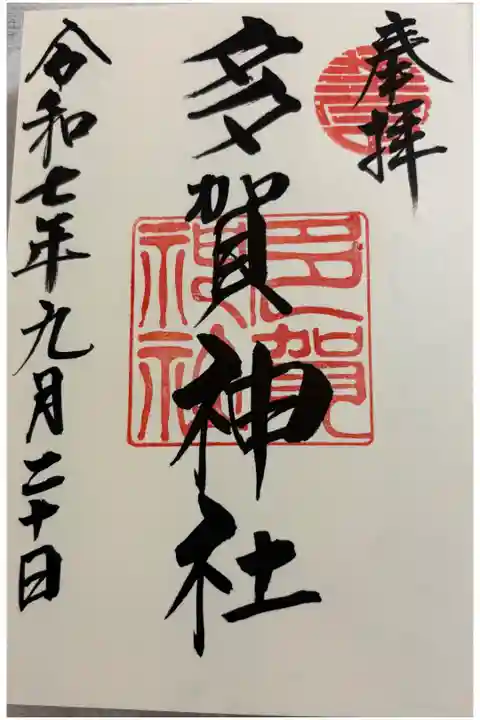 奉拝
多賀神社
令和七年九月二十日
多賀
神社